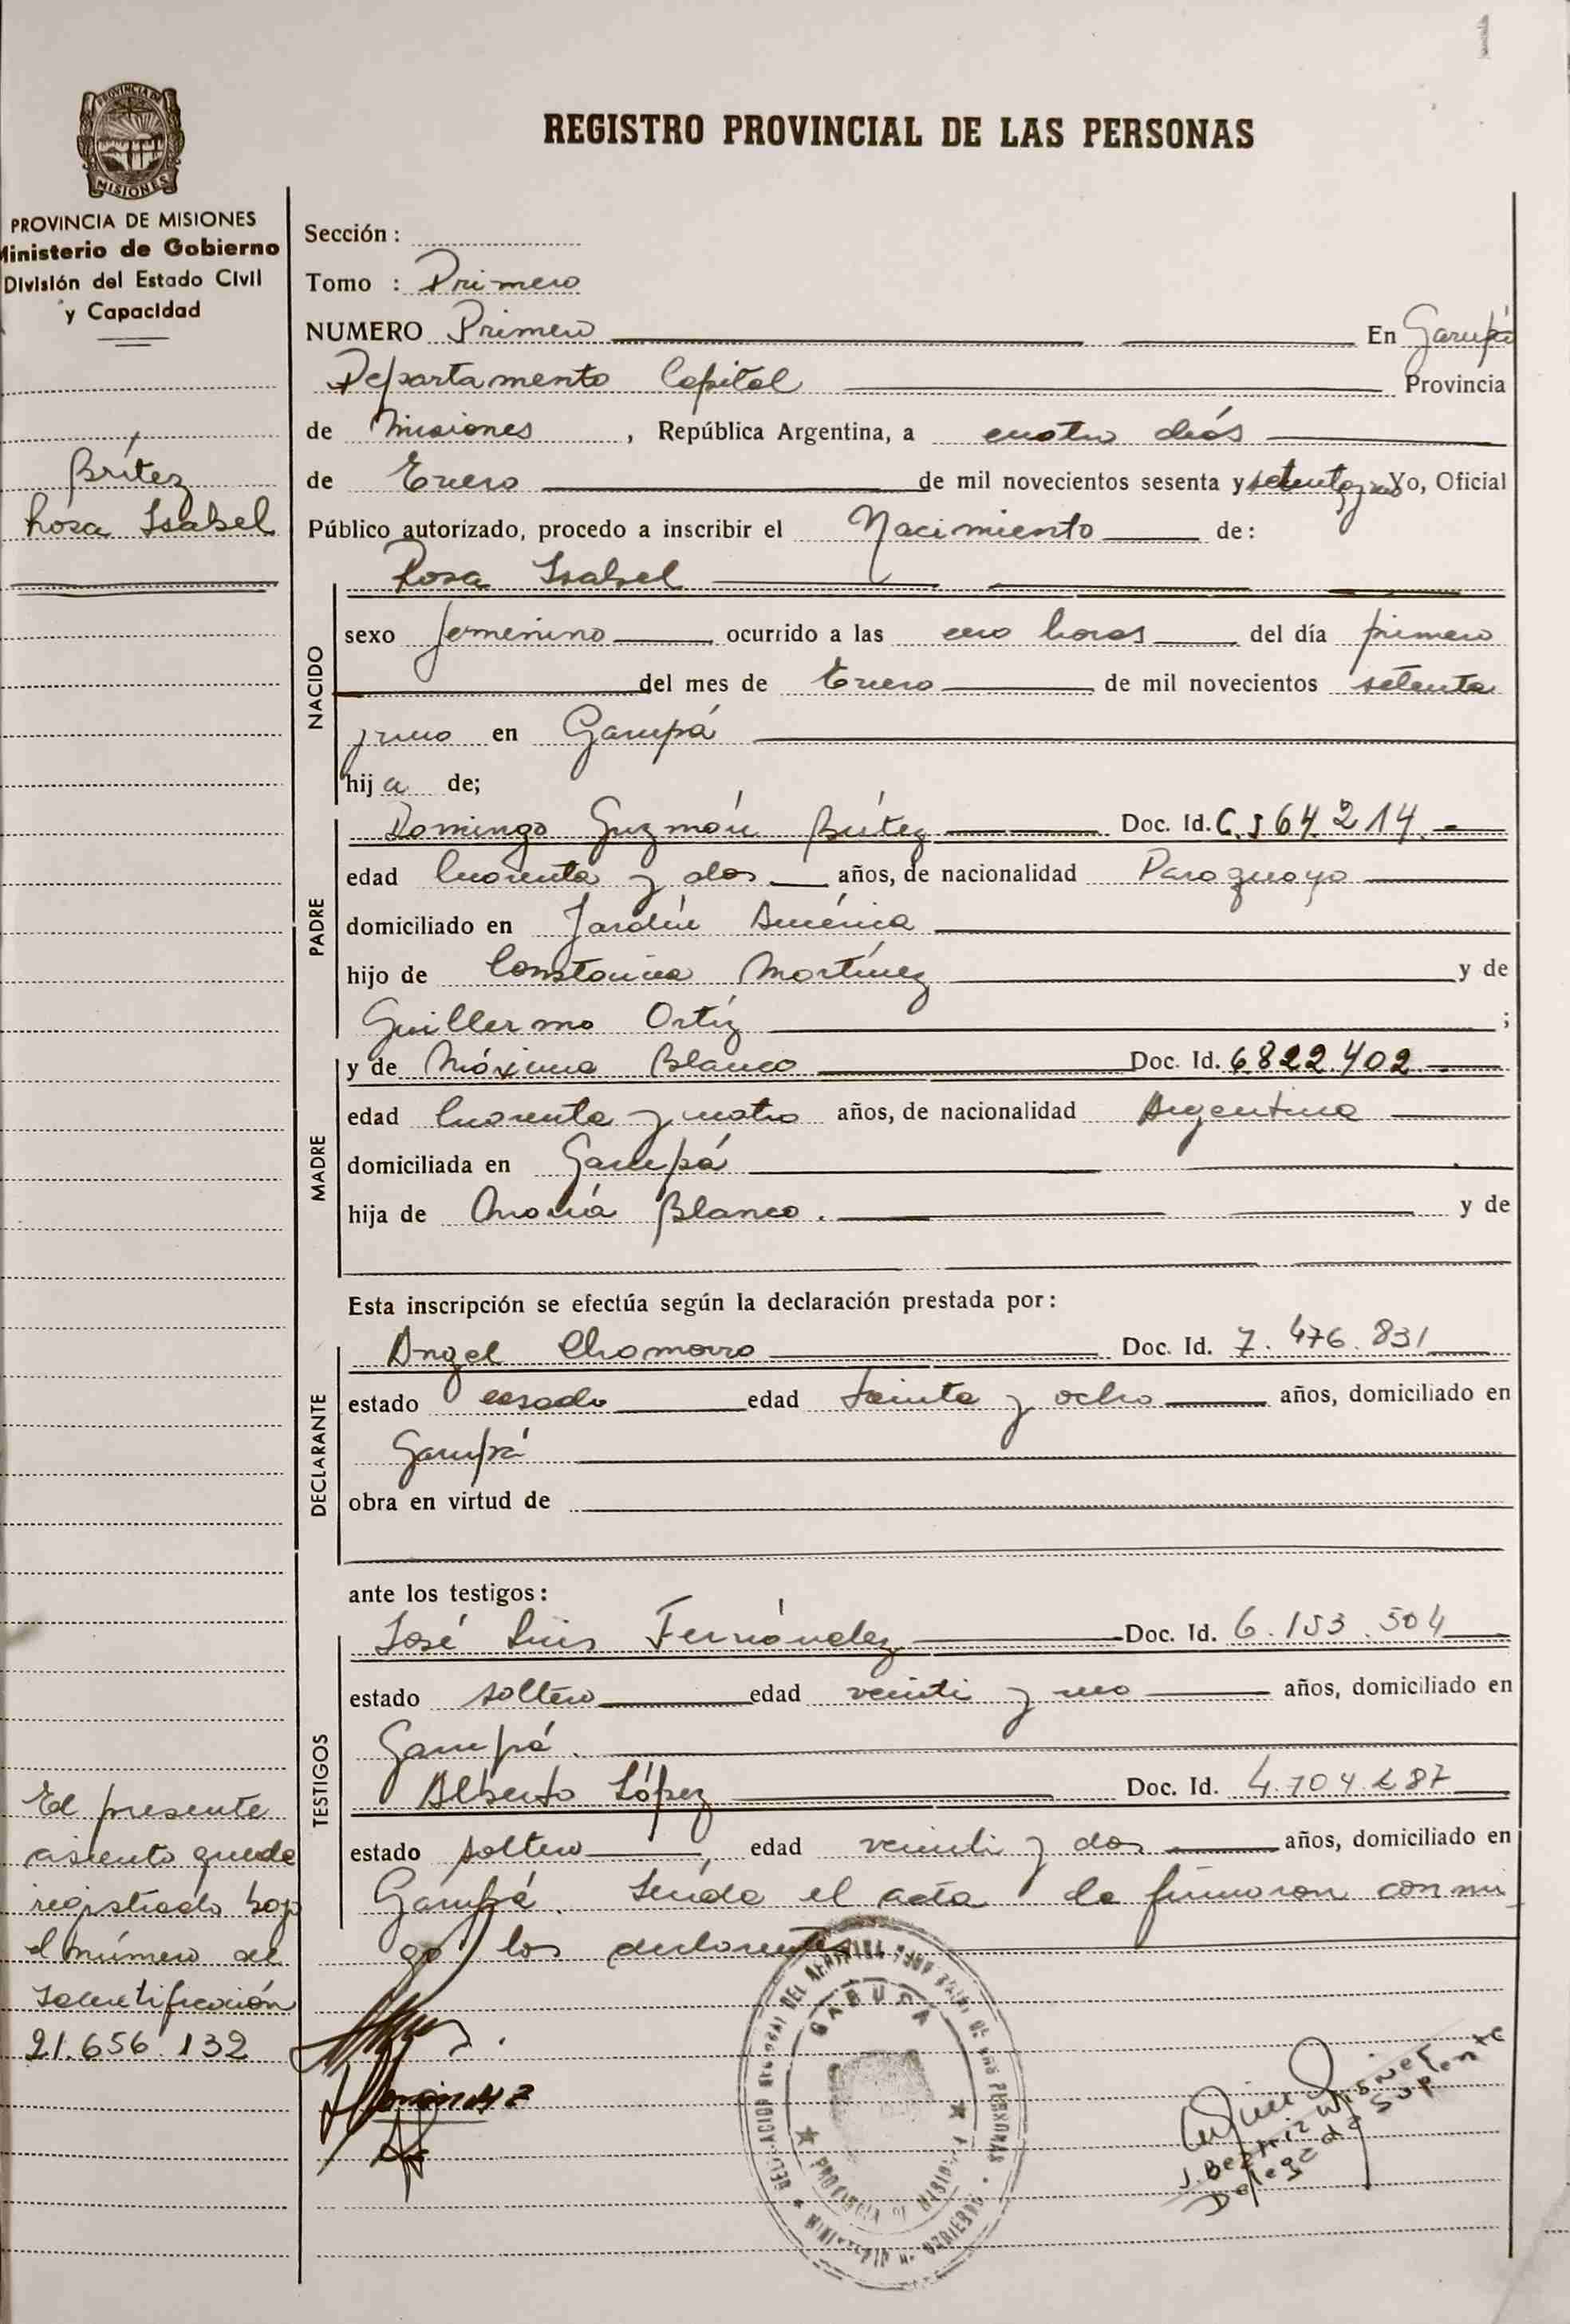 REGISTRO PROVINCIAL DE LAS PERSONAS
PROVINCIA DE MISIONES
PROVINCIA DE MISIONES
Ministerio de Gobierno
División del Estado Civil
y Capacidad
Brítez
Rosa Isabel
Sección :
Tomo : Primero
NUMERO Primero En Garupá
Departamento Capital Provincia
de Misiones , República Argentina, a cuatro días
de Enero de mil novecientos sesenta y setenta y uno Yo, Oficial
Público autorizado, procedo a inscribir el Nacimiento de:
Rosa Isabel
NACIDO
sexo femenino ocurrido a las cero horas del día primero
del mes de Enero de mil novecientos setenta
y uno en Garupá
hij a de;
PADRE
Domingo Guzmán Brítez Doc. Id. C.I 64214.-
edad Cuarenta y dos años, de nacionalidad Paraguaya
domiciliado en Jardín América
hijo de Constancia Martínez y de
Guillermo Ortíz ;
MADRE
y de Máxima Blanco Doc. Id. 6822.402
edad Cuarenta y cuatro años, de nacionalidad Argentina
domiciliada en Garupá
hija de María Blanco. y de
Esta inscripción se efectúa según la declaración prestada por:
DECLARANTE
Angel Chamorro Doc. Id. 7.476.831
estado casado edad treinta y ocho años, domiciliado en
Garupá
obra en virtud de
ante los testigos:
TESTIGOS
José Luis Fernández Doc. Id. 6.153.504
estado soltero edad veinti y uno años, domiciliado en
Garupá.
Alberto López Doc. Id. 4.704.287
estado soltero, edad veinti y dos años, domiciliado en
Garupá. Leída el acta la firmaron conmi
go los declarantes
El presente
asiento queda
registrado bajo
el número de
Identificación
21.656.132
GARUPA
J. Beatriz
Delegada Suplente